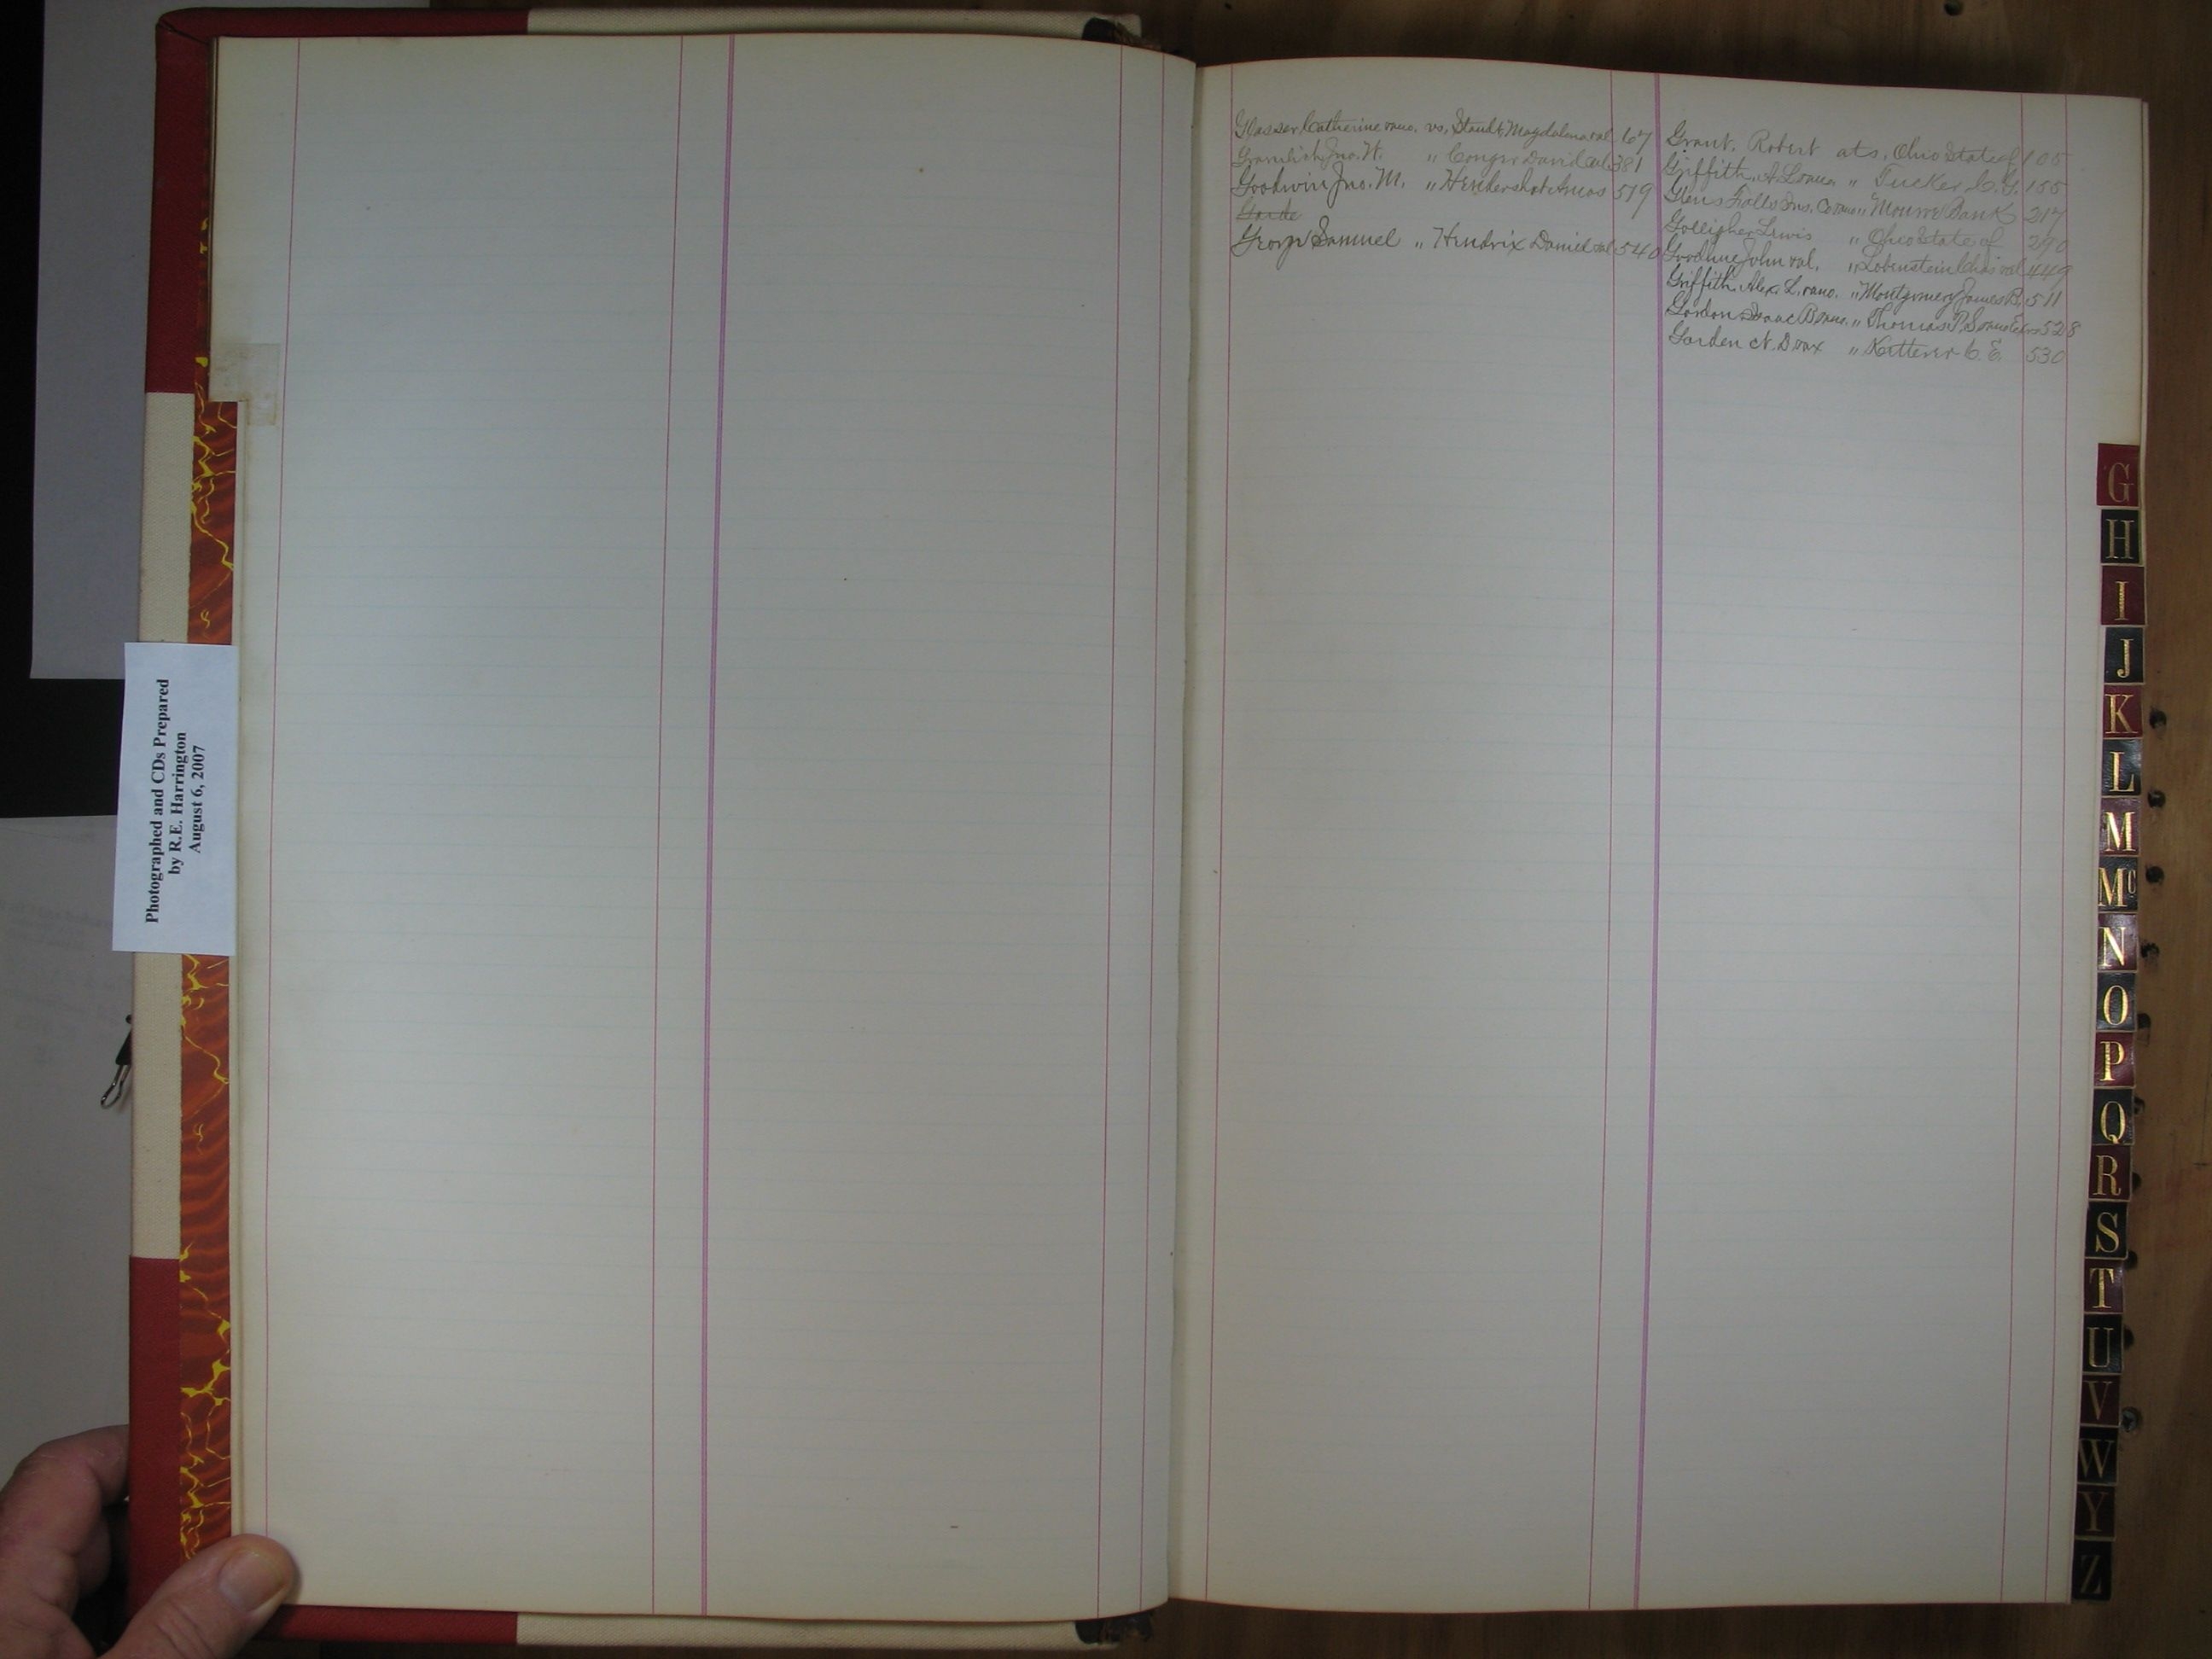 Photographed and CDs Prepared
by R.E. Harrington
August 6, 2007
Glasser Catherine vs. Staudt Magdalena et al 67
Jno. H. " Conger David 381
Goodwin Jno. M. " Hendershot Amos 519
George Samuel " Hendrix Daniel et al 540
Grant, Robert ats. Ohio State of 105
Griffith, A. L. " Tucker C. G. 155
Glens Falls Ins. Co " Monroe Bank 217
Golligher Lewis " Ohio State of 290
Goodhue John et al. " Lobenstein Chas et al 449
Griffith Alex. L. " Montgomery James B. 511
Gordon Isaac B " Thomas P. 528
Garden N. D " Ketterer C. E. 530
G
H
I
J
K
L
M
Mc
N
O
P
Q
R
S
T
U
V
W
Y
Z